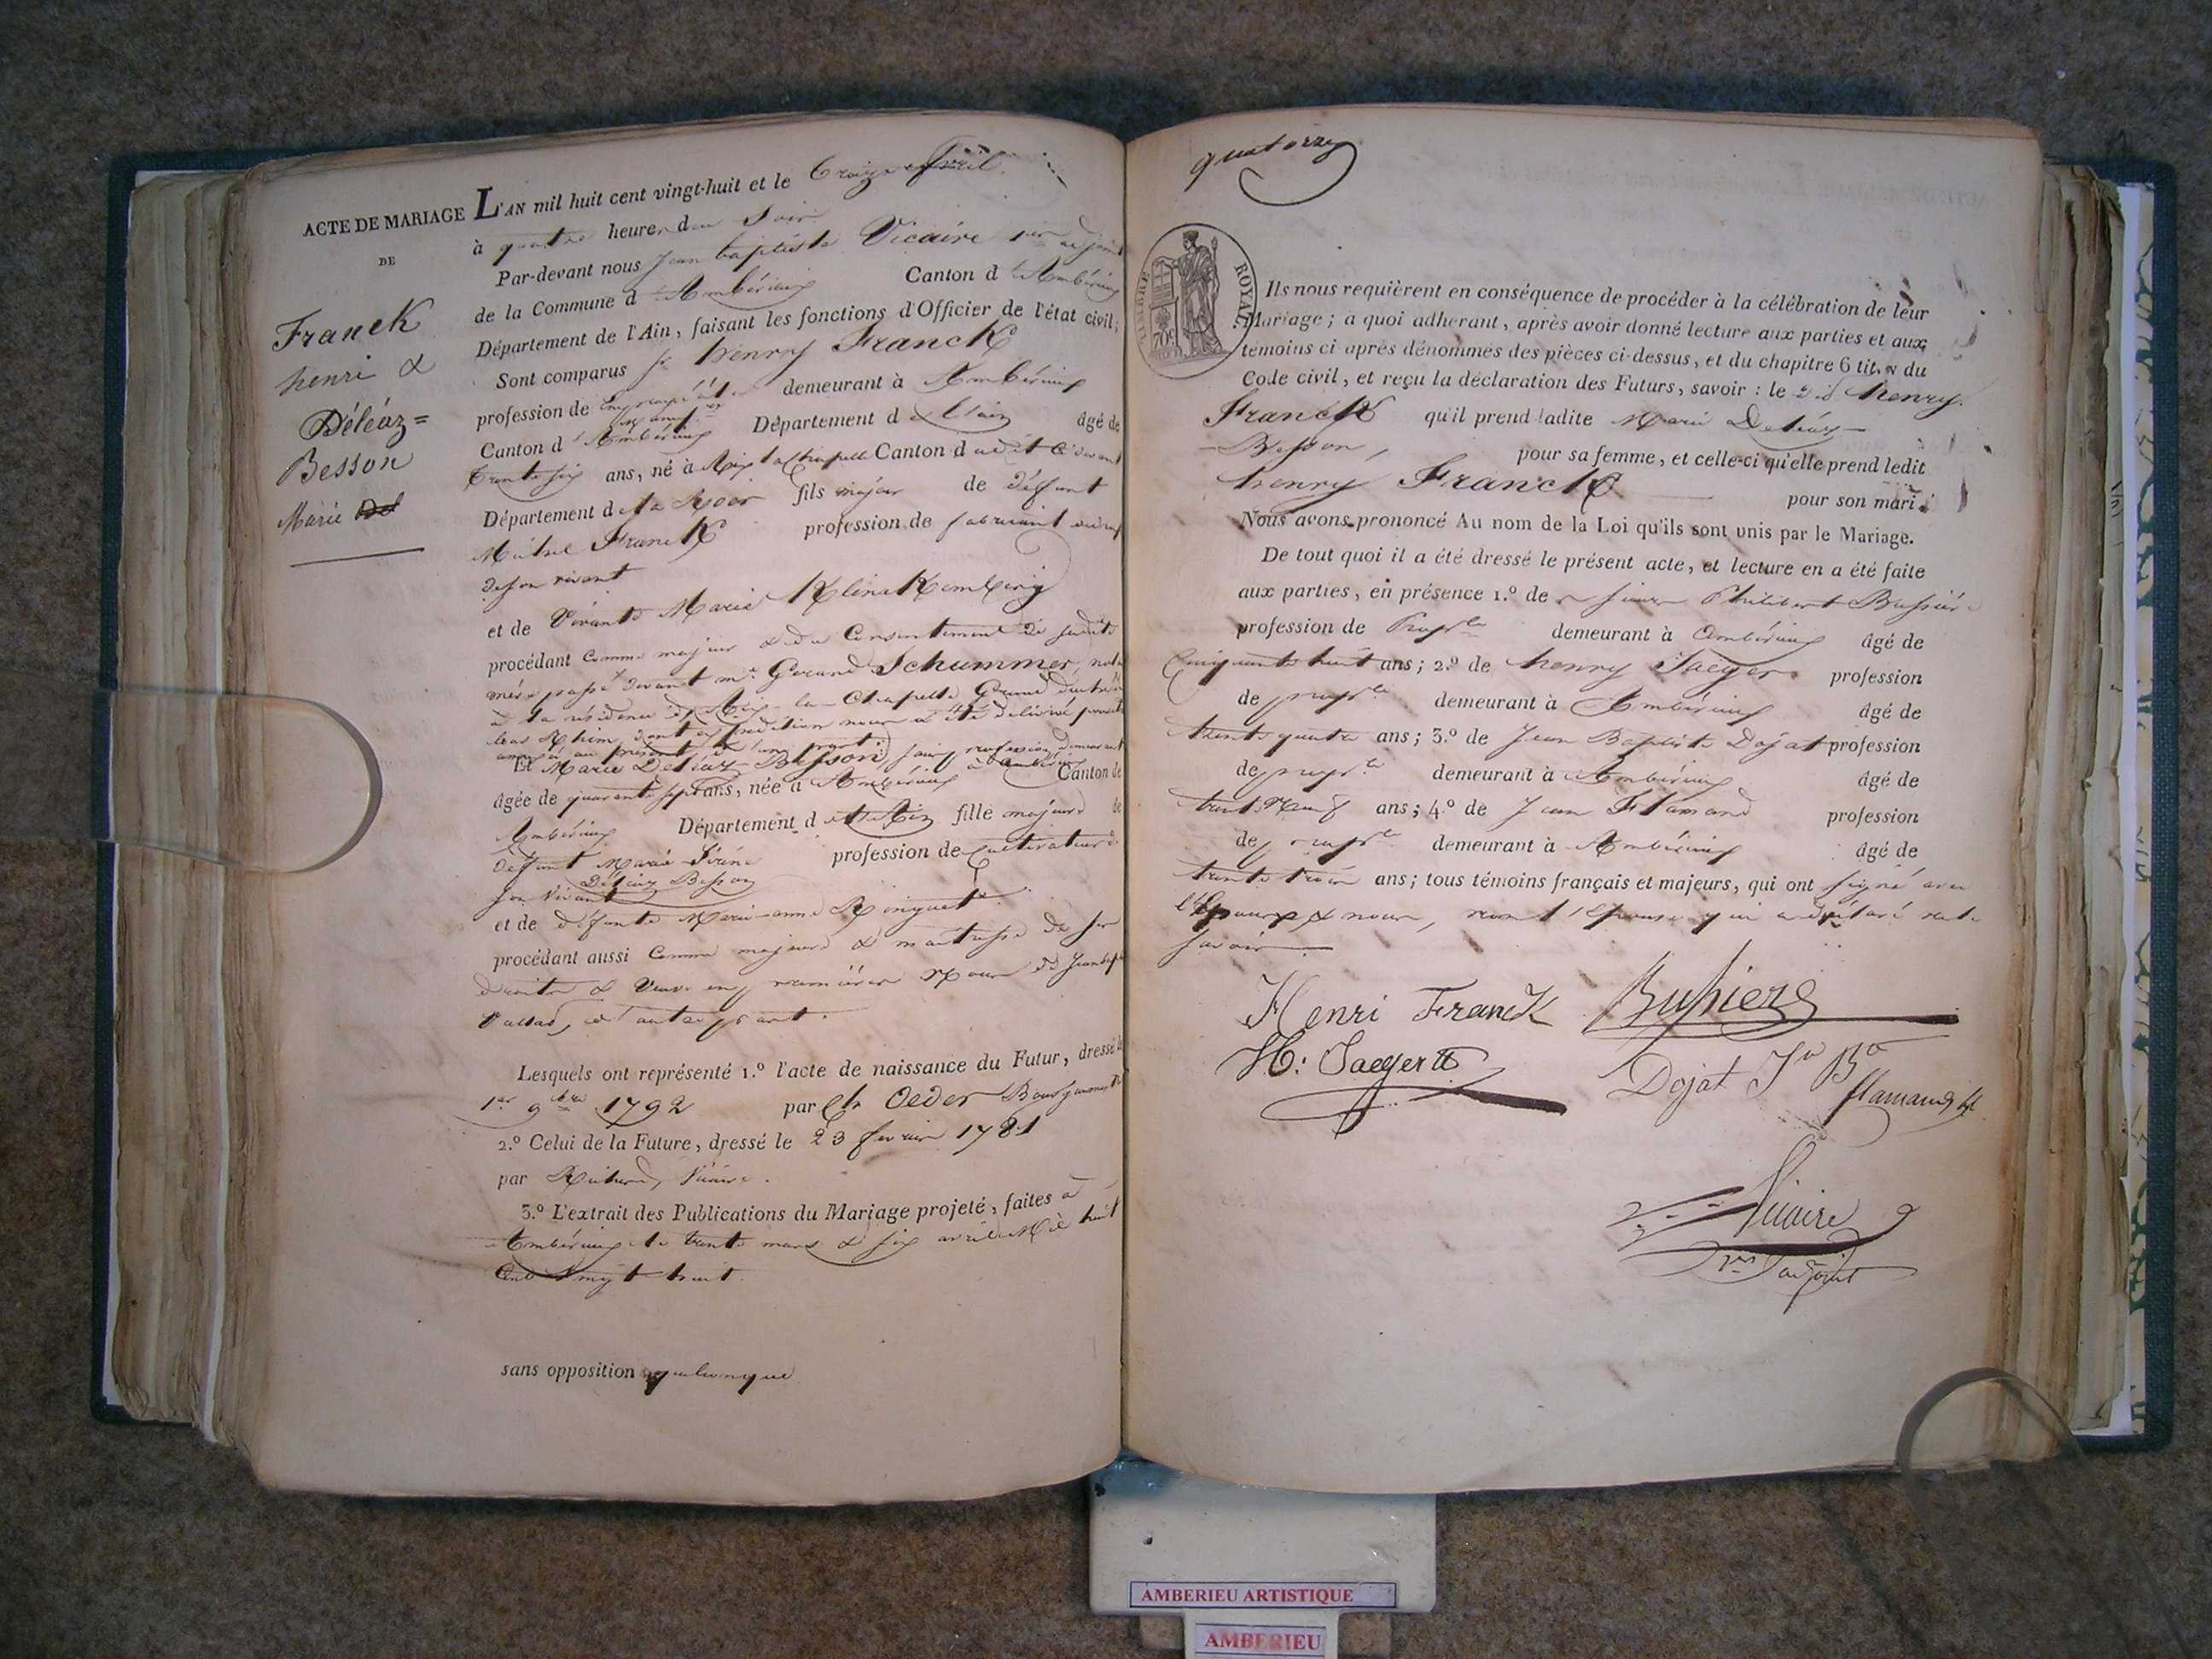 ACTE DE MARIAGE
DE
Franck
henri &
Déléaz=
Besson
Marie
L'AN mil huit cent vingt-huit et le treize avril
à quatre heures du Soir
Par-devant nous Jean baptiste Vicaire 1er adjoint
de la Commune d'Ambérieux Canton d'Ambérieux
Département de l'Ain, faisant les fonctions d'Officier de l'état civil,
Sont comparus Sr henry Franck
profession de demeurant à Ambérieux
Canton d'Ambérieux Département de l'ain âgé de
trente six ans, né à Aix la Chapelle Canton dudit Ci devant
Département de la Roër fils majeur de déffunt
Michel Franck profession de fabricant
de son vivant
et de Vivante Marie
procédant comme majeur & du Consentement de sa dite
mère passé devant me Gerard Schummer
à la résidence d'Aix-la-Chapelle
dont expédition nous a été délivrée
annexé au présent, d'une part;
Et Marie Deléaz-Besson, sans profession demeurant à Ambérieux
âgée de quarante sept ans, née à Ambérieux Canton de
Ambérieux Département de l'Ain fille majeure de
déffunt Marie
Déléaz Besson profession de Cultivateur de
son Vivant
et de défunte Marie-anne
procédant aussi Comme majeure & maitresse de ses
droits & Veuve en premières Noces de Jean
d'autre part.
Lesquels ont représenté 1.º l'acte de naissance du Futur, dressé le
1er 9bre 1792 par Oeder
2.º Celui de la Future, dressé le 23 fevrier 1781
par Vicaire.
3.º L'extrait des Publications du Mariage projeté, faites à
Ambérieux le trente mars & six avril Mil huit
Cent Vingt huit.
sans opposition quelconque
quatorze
TIMBRE ROYAL
70c
Ils nous requièrent en conséquence de procéder à la célébration de leur
Mariage; à quoi adhérant, après avoir donné lecture aux parties et aux
témoins ci-après dénommés des pièces ci-dessus, et du chapitre 6 tit. v du
Code civil, et reçu la déclaration des Futurs, savoir: le dit henry
Franck qu'il prend ladite Marie Deléaz-
-Besson, pour sa femme, et celle-ci qu'elle prend ledit
henry Franck pour son mari.
Nous avons prononcé Au nom de la Loi qu'ils sont unis par le Mariage.
De tout quoi il a été dressé le présent acte, et lecture en a été faite
aux parties, en présence 1.º de sieur Philibert Bussière
profession de Propre demeurant à Ambérieux âgé de
Cinquante huit ans; 2.º de henry Jaeger profession
de propre demeurant à Ambérieux âgé de
trente quatre ans; 3.º de Jean Baptiste Dojat profession
de propre demeurant à Ambérieux âgé de
trente Neuf ans; 4.º de Jean Flamand profession
de propre demeurant à Ambérieux âgé de
trente trois ans; tous témoins français et majeurs, qui ont signé avec
l'Epoux & nous, non l'Epouse qui a déclaré ne le
savoir.
Henri Franck
H: Jaeger
Dojat Jn Be
flamand
Vicaire
1er adjoint
AMBERIEU ARTISTIQUE
AMBERIEU